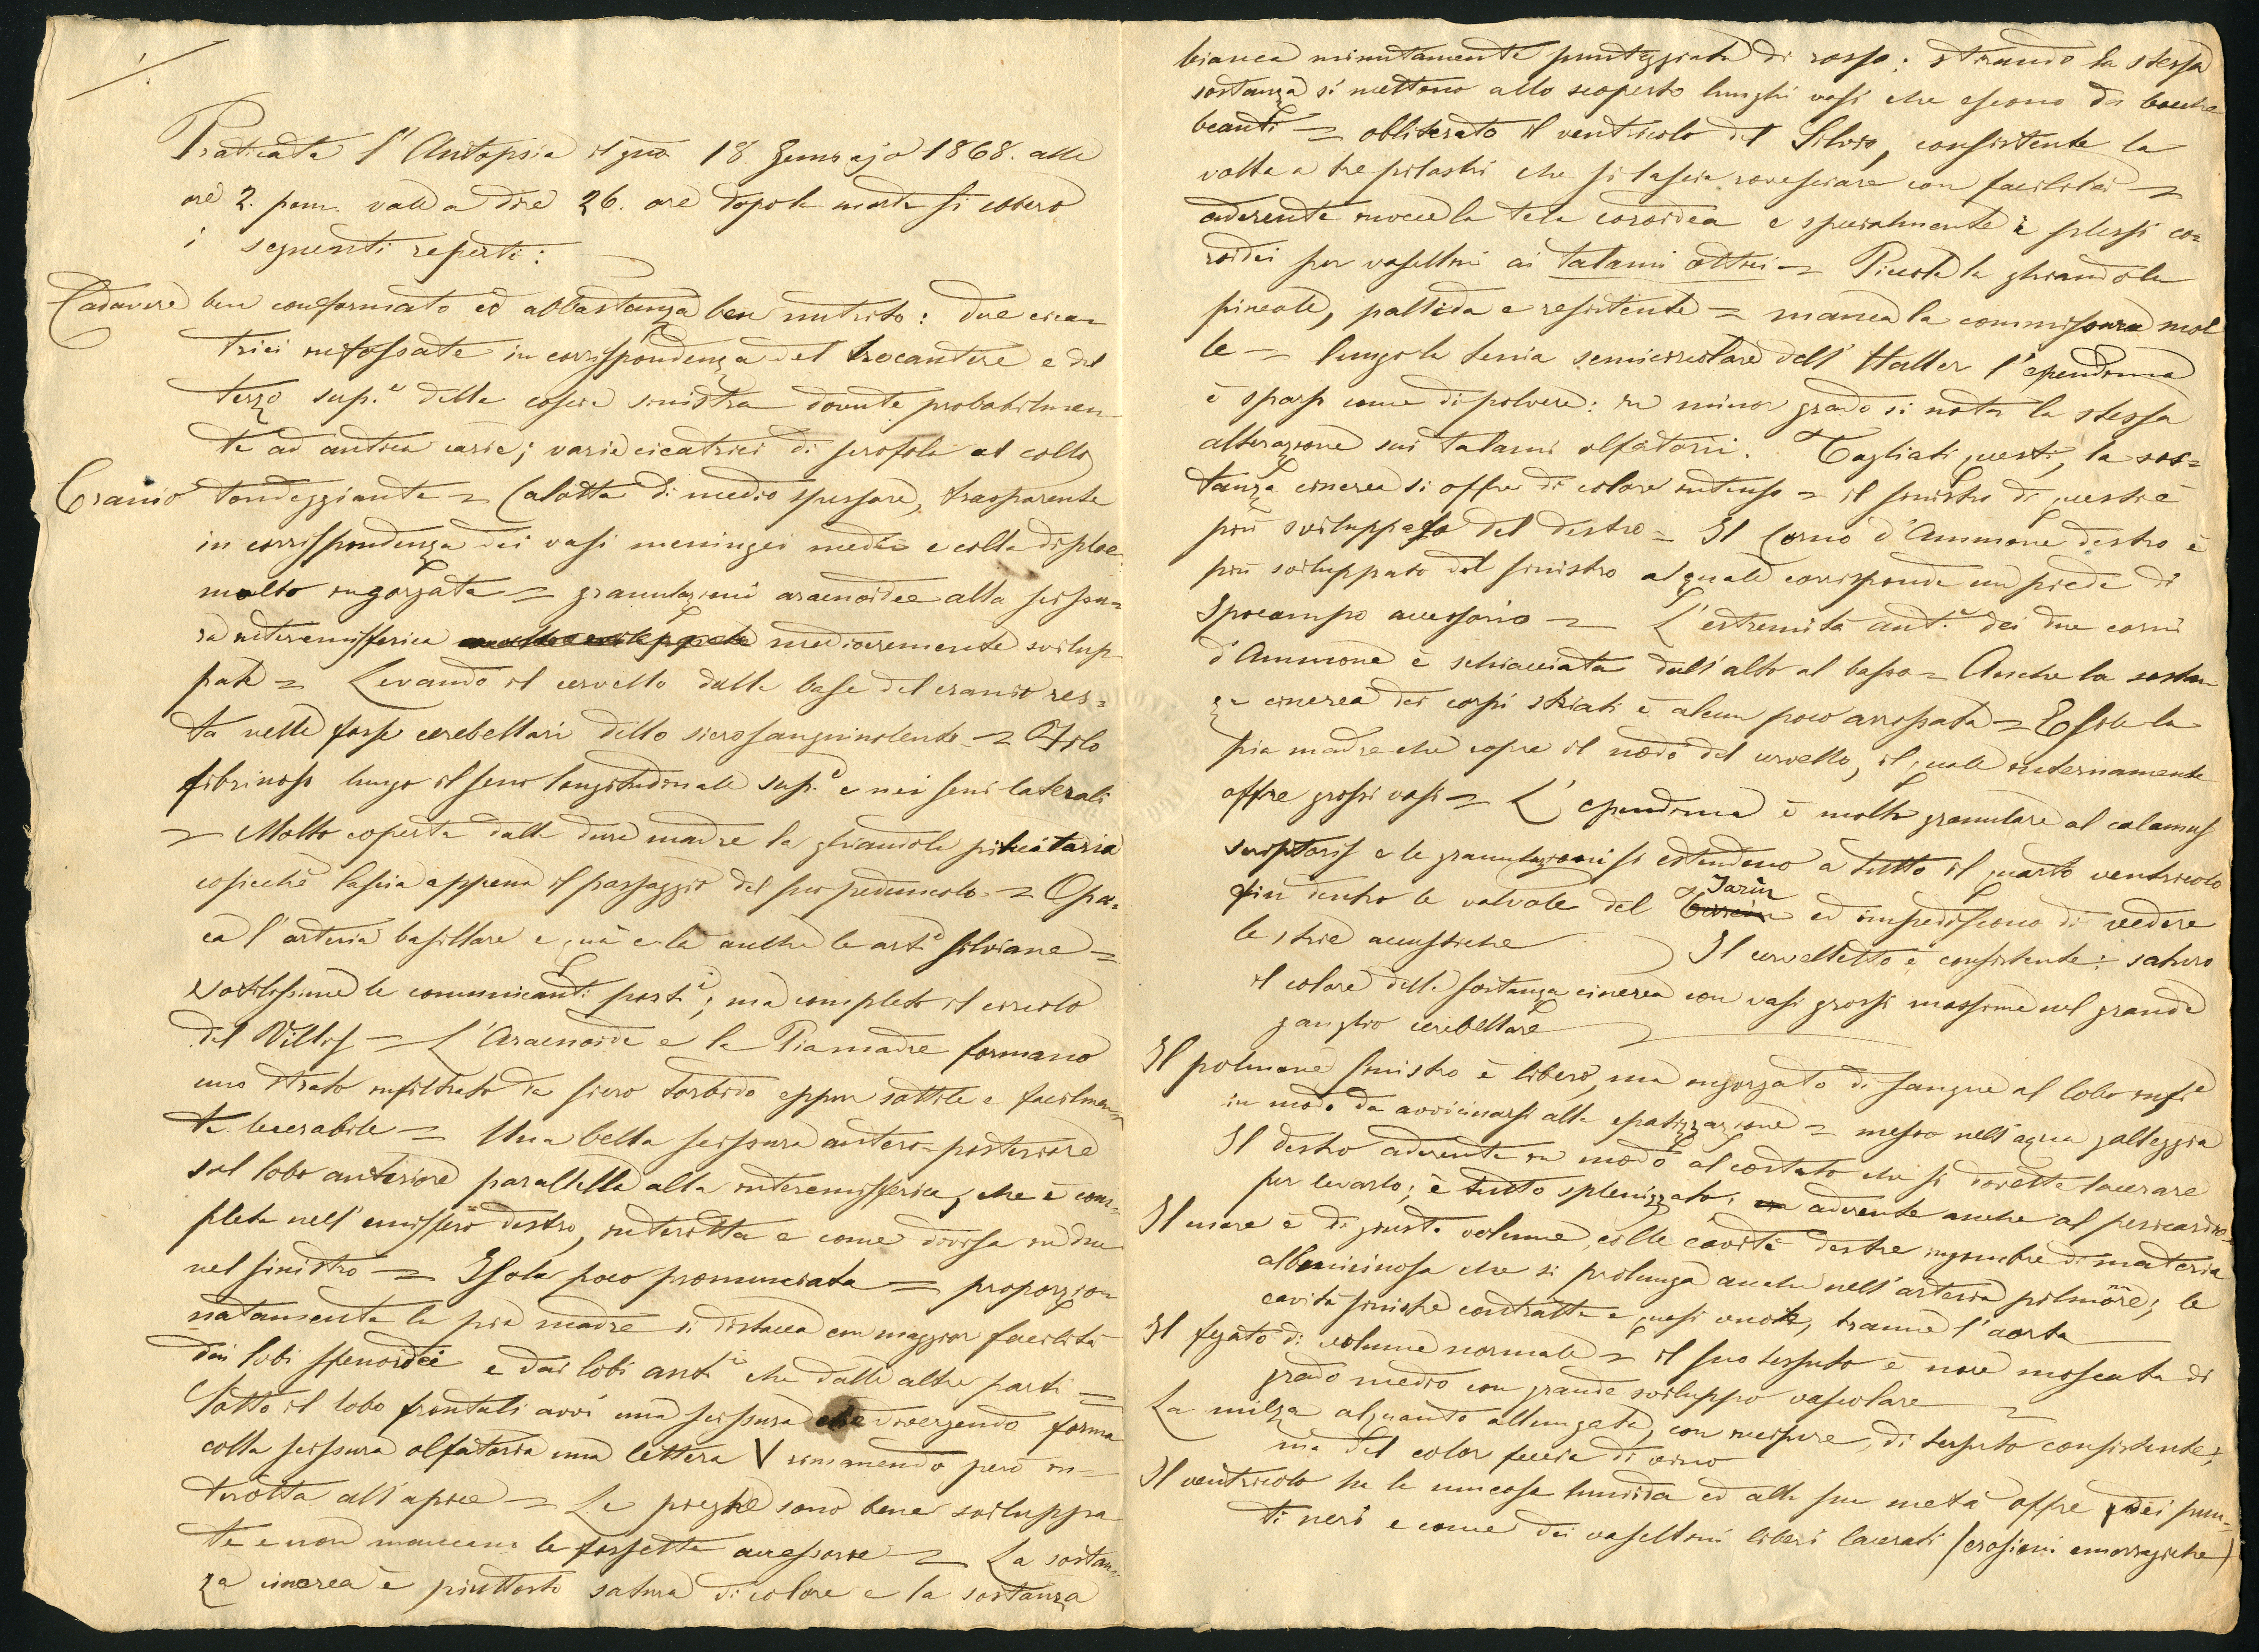 1.
Praticata l'Autopsia il gno 18 Gennajo 1868. alle
ore 2. pom. vale a dire 26. ore dopo la morte si ebbero
i seguenti reperti:
Cadavere ben conformato ed abbastanza ben nutrito: due cica=
trici infossate in corrispondenza del trocantere e del
terzo sup.e della coscia sinistra dovute probabilmen=
te ad antica carie; varie cicatrici di scrofole al collo
Cranio tondeggiante = Calotta di medio spessore, trasparente
in corrispondenza dei vasi meningei medii e colla diploe
molto ingorgata = granulazioni aracnoidee alla scissu=
ra interemisferica mediocremente svilup=
pate = Levando il cervello dalla base del cranio res=
ta nelle fosse cerebellari dello siero sanguinolento = Filo
fibrinoso lungo il seno longitudinale sup.e e nei seni laterali
= Molto coperta dalla dura madre la ghiandola pituitaria
cosicchè lascia appena il passaggio del suo peduncolo = Opa=
ca l'arteria basillare e quà e là anche le art.e silviane =
sottilissime le comunicanti post.i; ma completo il circolo
del Villis = L'Aracnoide e la Pia madre formano
uno strato infiltrato da siero torbido eppur sottile e facilmen=
te lacerabile = Una bella scissura antero=posteriore
sul lobo anteriore parallella alla interemisferica, che è com=
pleta nell'emisfero destro, interotta e come divisa in due
nel sinistro = Isola poco pronunciata = proporzio=
natamente la pia madre si distacca con maggior facilità
dai lobi sfenoidei e dai lobi ant.i che dalle altre parti =
Sotto il lobo frontali avvi una scissura che divergendo forma
colla scissura olfatoria una lettera V rimanendo però in=
terotta all'apice = Le pieghe sono bene sviluppa
te e non mancano le fossette accessorie = La sostan=
za cinerea è piuttosto satura di colore e la sostanza
bianca minutamente punteggiata di rosso; stirando la stessa
sostanza si mettono allo scoperto lunghi vasi che escono da bocche
beanti = obliterato il ventricolo del Silvio, consistente la
volta a tre pilastri che si lascia rovesciare con facilità =
aderente invece la tela coroidea e specialmente i plessi co=
roidei per vasellini ai talami ottici = Piccola la ghiandola
pineale, pallida e resistente = manca la commissura mol
le = lungo la tenia semicircolare dell'Haller l'ependima
è sparso come di polvere: in minor grado si nota la stessa
alterazione sui talami olfatorii. Tagliati questi, la sos=
tanza cinerea si offre di colore intenso = il sinistro di questi è
più sviluppato del destro = Il Corno d'Ammone destro è
più sviluppato del sinistro al quale corrisponde un piede di
Ipocampo accessorio = L'estremità ant.e dei due corni
d'Ammone è schiacciata dall'alto al basso = Anche la sostan
za cinerea dei corpi striati è alcun poco arrossata = Esile la
pia madre che copre il nodo del cervello, il quale internamente
offre grossi vasi = L'ependima è molto granulare al calamus
scriptoris e le granulazioni si estendono a tutto il quarto ventricolo
fin dentro le valvole del Tarin ed impediscono di vedere
le strie acustiche Il cervelletto è consistente: saturo
il colore della sostanza cinerea con vasi grossi massime nel grande
ganglio cerebellare
Il polmone sinistro è libero, ma ingorgato di sangue al lobo inf.e
in modo da avvicinarsi alla epatizzazione = messo nell'acqua galleggia
Il destro aderente in modo al costato che si dovette lacerare
per levarlo; è tutto splenizzato, aderente anche al pericardio =
Il cuore è di giusto volume, colle cavità destre ingombre di materia
albuminosa che si prolunga anche nell'arteria polmonre; le
cavità sinistre contratte e quasi vuote, tranne l'aorta
Il fegato di volume normale = il suo tessuto è noce moscata di
grado medio con grande sviluppo vascolare
La milza alquanto allungata, con incisure, di tessuto consistente,
ma del color feccia di vino
Il ventricolo ha la mucosa tumida ed alla sua metà offre dei pun=
ti neri e come dei vasellini liberi lacerati (erosioni emorragiche)